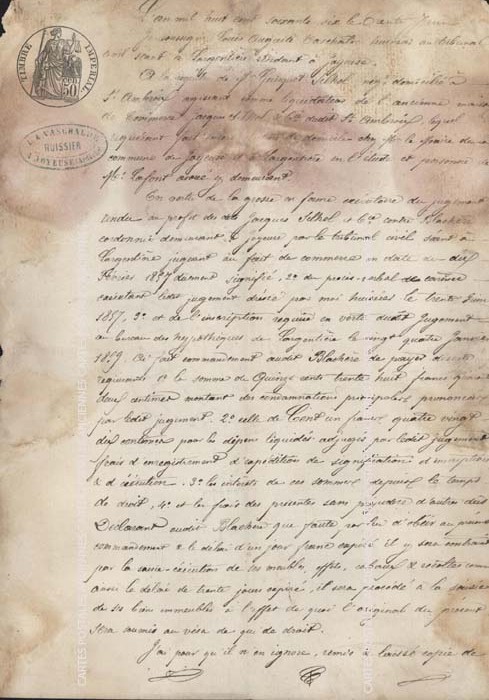 L'an mil huit cent soixante six le trente Juin
huissier au tribunal
civil séant à Largentière résidant à Joyeuse.
À la requête de Mr Jacques Silhol négt domicilié à
St Ambroix agissant comme liquidateur de l'ancienne maison
de Commerce Jacques Silhol & Cie dudit St Ambroix, lequel
requérant fait élection de domicile
commune de Joyeuse et à Largentière en l'étude et personne de
Me Lafont avoué y demeurant
En vertu de la grosse en forme exécutoire du jugement
rendu au profit de Jacques Silhol & Cie contre Blachère
cordonnier demeurant à Joyeuse par le tribunal civil séant à
Largentière jugeant au fait de commerce en date du dix
Février 1857 dûment signifié, 2° du procès-verbal de carence
exécutant ledit jugement dressé par moi huissier le trente Juin
1857, 3° et de l'inscription requise en vertu dudit Jugement
au bureau des hypothèques de Largentière le vingt quatre Janvier
1859. Ai fait commandement audit Blachère de payer
requérants 1° la somme de Quinze cents trente huit francs
deux centimes montant des condamnations principales prononcées
par ledit jugement. 2° celle de Cent un francs quatre vingt
dix centimes pour les dépens liquidés adjugés par ledit jugement
frais d'enregistrement d'expédition de signification d'inscription
& d'exécution. 3° les intérêts de ces sommes depuis le temps
de droit, 4° et les frais des présentes sans préjudice d'autres dus
Déclarant audit Blachère que faute par lui d'obéir au présent
commandement & le délai d'un jour franc expiré il y sera contraint
par la saisie-exécution de ses meubles, effets, cabaux & récoltes comme
aussi le délai de trente jours expiré, il sera procédé à la saisie
de ses biens immeubles à l'effet de quoi l'original du présent
sera soumis au visa de qui de droit.
J'ai pour qu'il n'en ignore, remis & laissé copie de
TIMBRE IMPÉRIAL
50
HUISSIER
À JOYEUSE
CARTES POSTALES ANCIENNES